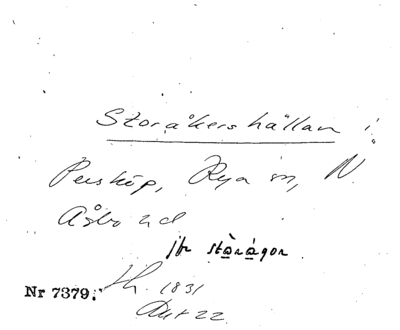 Storåkershällan i
Perstop, Rya sn, N.
Åsbo hd
jfr storågor.
Nr 7379. 1831
Akt 22